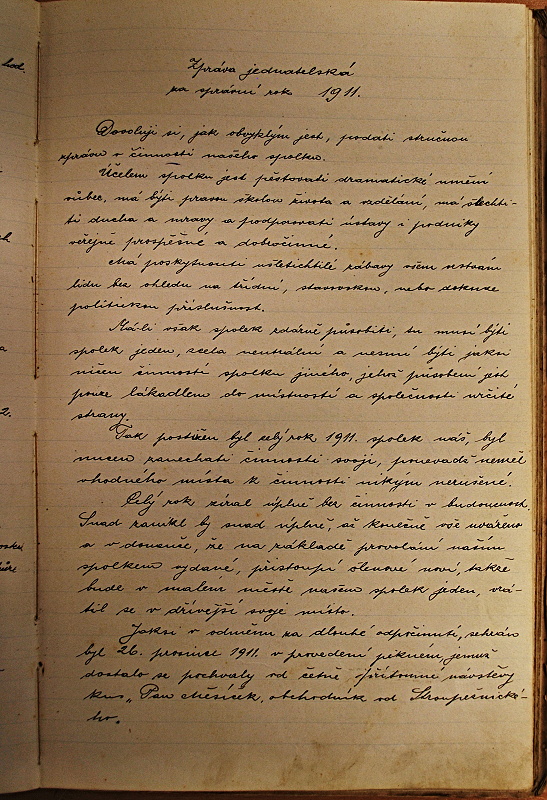 hod.
Zpráva jednatelská
za správní rok 1911.
Dovoluji si, jak obvyklým jest, podati stručnou
zprávu o činnosti našeho spolku.
Účelem spolku jest pěstovati dramatické umění
vůbec, má býti pravou školou života a vzdělání, má šlechti-
ti ducha a mravy a podporovati ústavy i podniky
veřejně prospěšné a dobročinné.
Má poskytnouti ušlechtilé zábavy všem vrstvám
lidu bez ohledu na třídní, stavovskou, nebo dokonce
politickou příslušnost.
Má-li však spolek zdárně působiti, tu musí býti
spolek jeden, zcela neutrální a nesmí býti jaksi
ničen činností spolku jiného, jehož působení jest
pouze lákadlem do místností a společnosti určité
strany.
2.
Tak postižen byl celý rok 1911. spolek náš, byl
nucen zanechati činnosti svojí, poněvadž neměl
vhodného místa k činnosti nikým nerušené.
Celý rok zíral úplně bez činnosti v budoucnost.
Snad zanikl by snad úplně, až konečně vše uváženo
a v domnění, že na základě provolání naším
spolkem vydané, přistoupí členové noví, takže
bude v malém městě našem spolek jeden, vrá-
til se v dřívější svoje místo.
Jaksi v odměnu za dlouhé odpočinutí, sehrán
byl 26. prosince 1911. v provedení pěkném, jemuž
dostalo se pochvaly od četně přítomné návštěvy
kus „Pan Měsíček, obchodník od Stroupežnické-
ho.